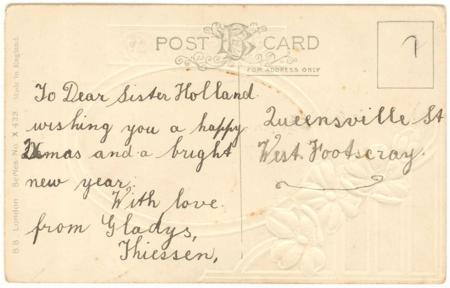 POST CARD
FOR ADDRESS ONLY
B.B. London Series No. X 433 Made in England.
To Dear Sister Holland
wishing you a happy
Xmas and a bright
new year.
With love
from Gladys,
Thiessen,
Queensville St
West Footscray.